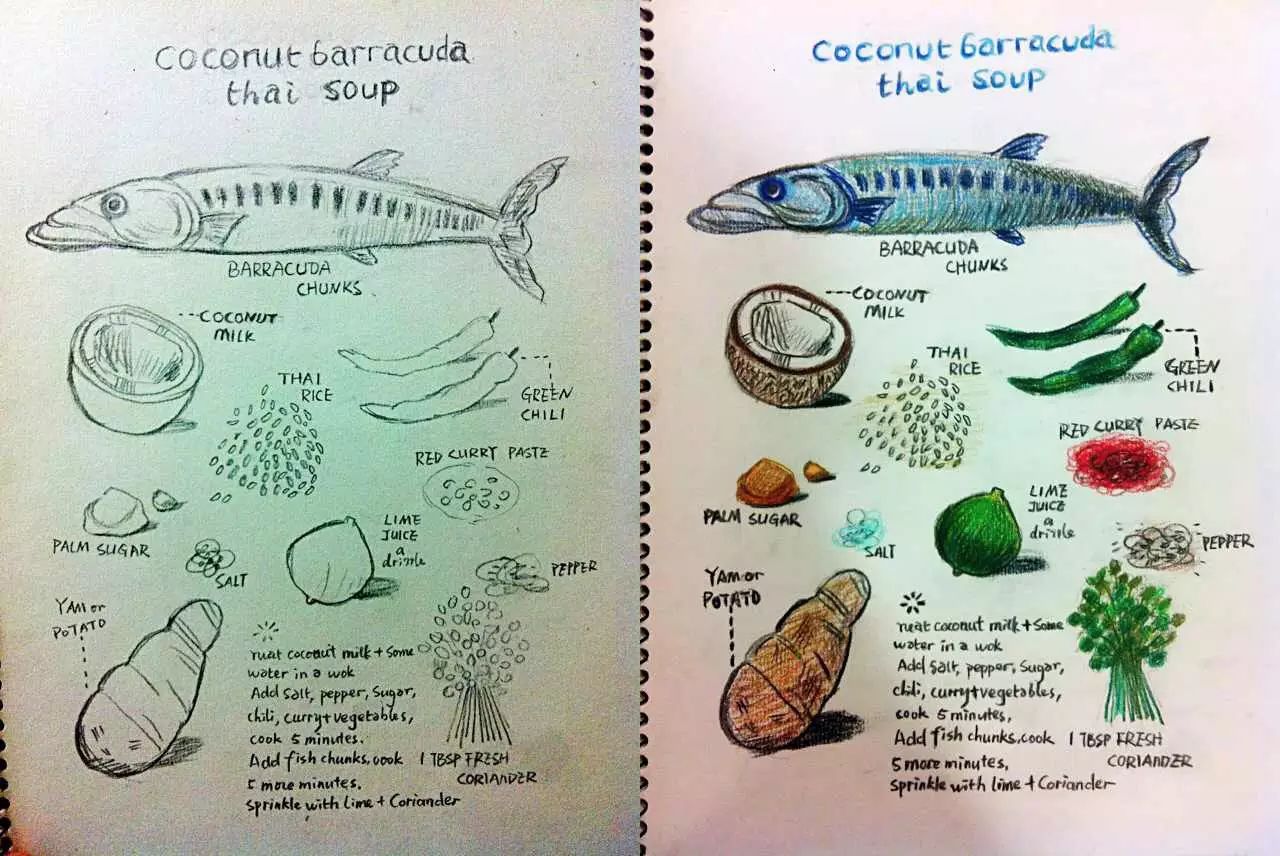 coconut barracuda
thai soup
BARRACUDA
CHUNKS
COCONUT
MILK
THAI
RICE
GREEN
CHILI
RED CURRY PASTE
PALM SUGAR
SALT
LIME
JUICE
a
drizzle
PEPPER
YAM or
POTATO
coconut milk + some
water in a wok
Add salt, pepper, sugar,
chili, curry+vegetables,
cook 5 minutes.
Add fish chunks, cook
5 more minutes,
sprinkle with lime + Coriander
1 TBSP FRESH
CORIANDER
coconut barracuda
thai soup
BARRACUDA
CHUNKS
COCONUT
MILK
THAI
RICE
GREEN
CHILI
RED CURRY PASTE
PALM SUGAR
SALT
LIME
JUICE
a
drizzle
PEPPER
YAM or
POTATO
coconut milk + some
water in a wok
Add salt, pepper, sugar,
chili, curry+vegetables,
cook 5 minutes,
Add fish chunks, cook
5 more minutes,
sprinkle with lime + Coriander
1 TBSP FRESH
CORIANDER